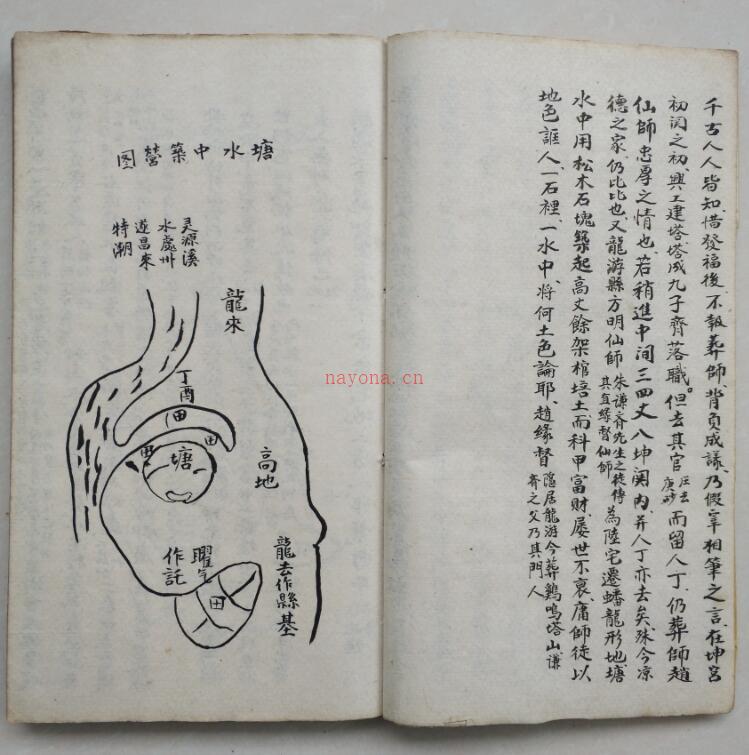 千古人人皆知惜發福後不報葬師背負成議乃假宰相筆之言在坤宮
初関之初興工建塔塔成九子齊落職但去其官旺去庚砂而留人丁仍葬師趙
仙師忠厚之情也若稍進中间三四丈八坤関内并人丁亦去矣殊今凉
德之家仍比比也又龍游縣方明仙師朱謙齊先生之徒傳其直缘督仙師為陸宅遷蟠龍形地塘
水中用松木石塊築起高丈餘架棺培土而科甲富財屡世不衰庸師徒以
地色誆人一石裡一水中将何土色論耶趙缘督隱居龍游今葬鷄鳴塔山謙齊之父乃其門人
塘水中築營图
灵源溪
水處州
遂昌來
特潮
龍來
丁酉
田
田
田
塘
高地
曜气
作託
龍去作縣基
田
nayona.cn